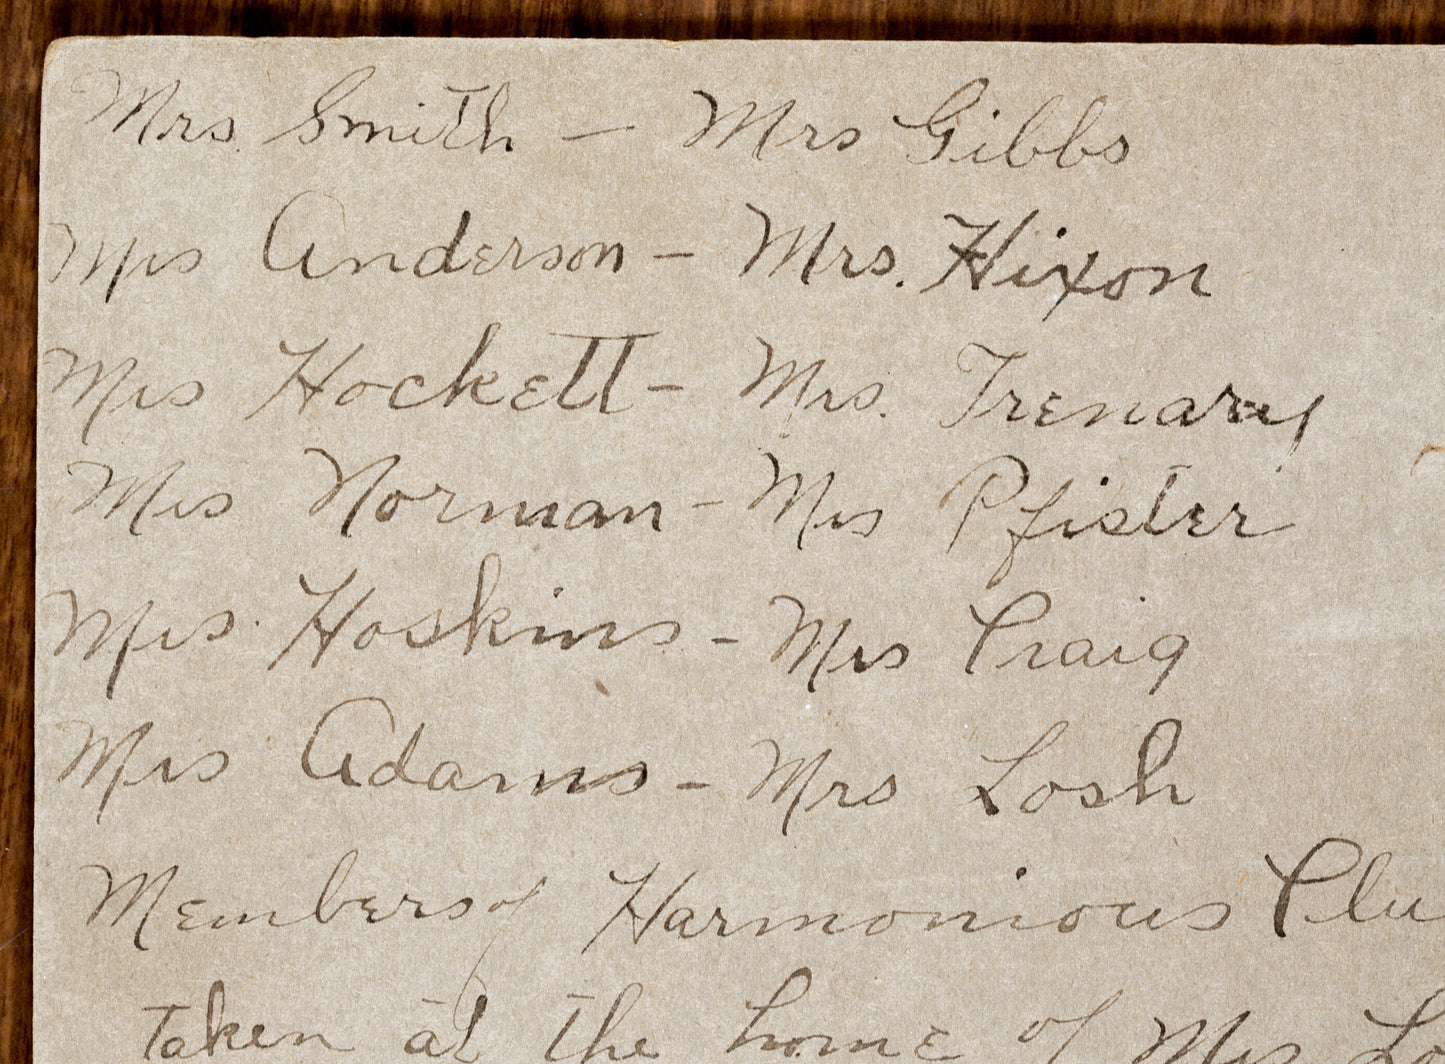 Mrs Smith — Mrs Gibbs
Mrs Anderson – Mrs. Hixon
Mrs Hockett – Mrs. Trenary
Mrs Norman – Mrs Pfister
Mrs. Hoskins – Mrs Craig
Mrs Adams – Mrs Losh
Members of Harmonious Clu
taken at the home of Mrs Lo